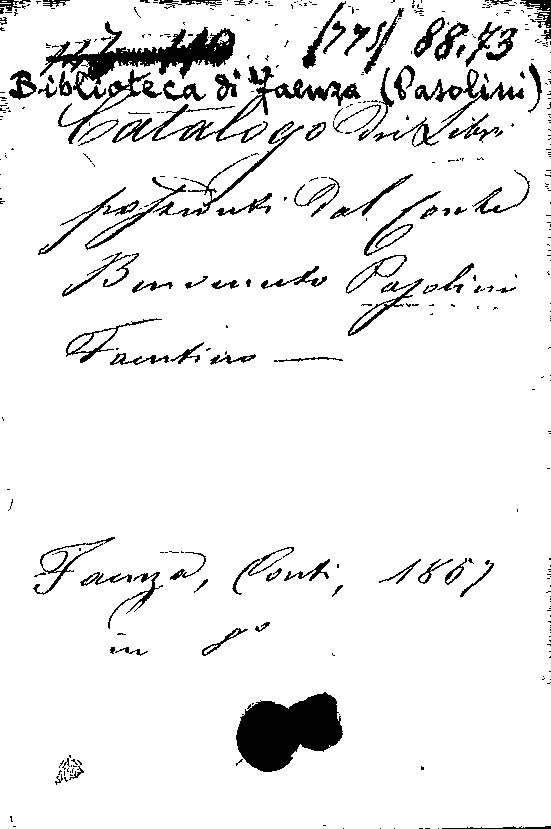 (775) 88.73
Biblioteca di Faenza (Pasolini)
Catalogo dei Libri
posseduti dal Conte
Benvenuto Pasolini
Faentino —
Faenza, Conti, 1867
in 8º